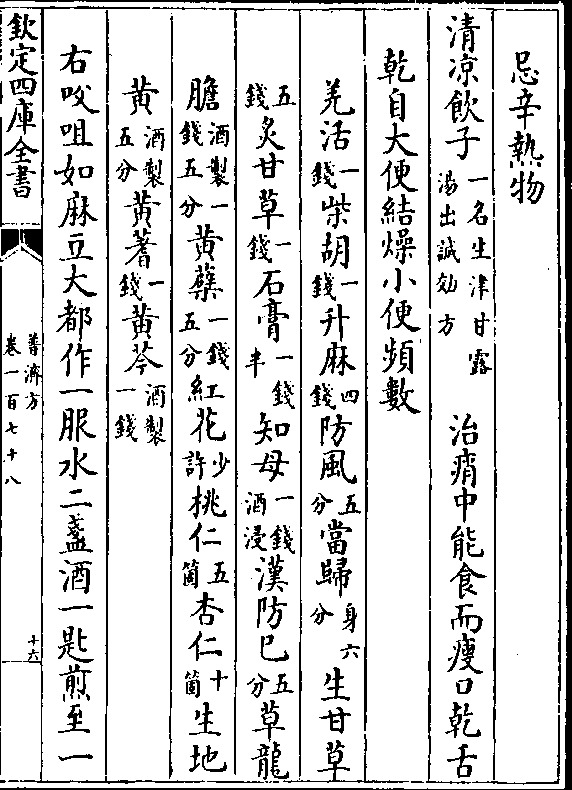 忌辛熱物
清凉飲子一名生津甘露湯出誠効方 治痟中能食而瘦口乾舌
乾自大便結燥小便頻數
羌活一錢柴胡一錢升麻四錢防風五分當歸身六分生甘草
五錢炙甘草一錢石膏一錢半知母一錢酒浸漢防巳五分草龍
膽酒製一錢五分黄蘗一錢五分紅花少許桃仁五箇杏仁十箇生地
黄酒製五分黄蓍一錢黄芩酒製一錢
右㕮咀如麻豆大都作一服水二盞酒一匙煎至一
欽定四庫全書
普濟方
卷一百七十八
十六